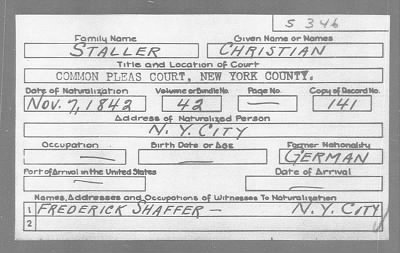 S 346
Family Name Given Name or Names
STALLER CHRISTIAN
Title and Location of Court
COMMON PLEAS COURT, NEW YORK COUNTY.
Date of Naturalization Volume or Bundle No. Page No. Copy of Record No.
NOV. 7, 1842 42 — 141
Address of Naturalized Person
N. Y. CITY
Occupation Birth Date or Age Former Nationality
— — GERMAN
Port of Arrival in the United States Date of Arrival
— —
Names, Addresses and Occupations of Witnesses To Naturalization
1 FREDERICK SHAFFER — N. Y. CITY
2